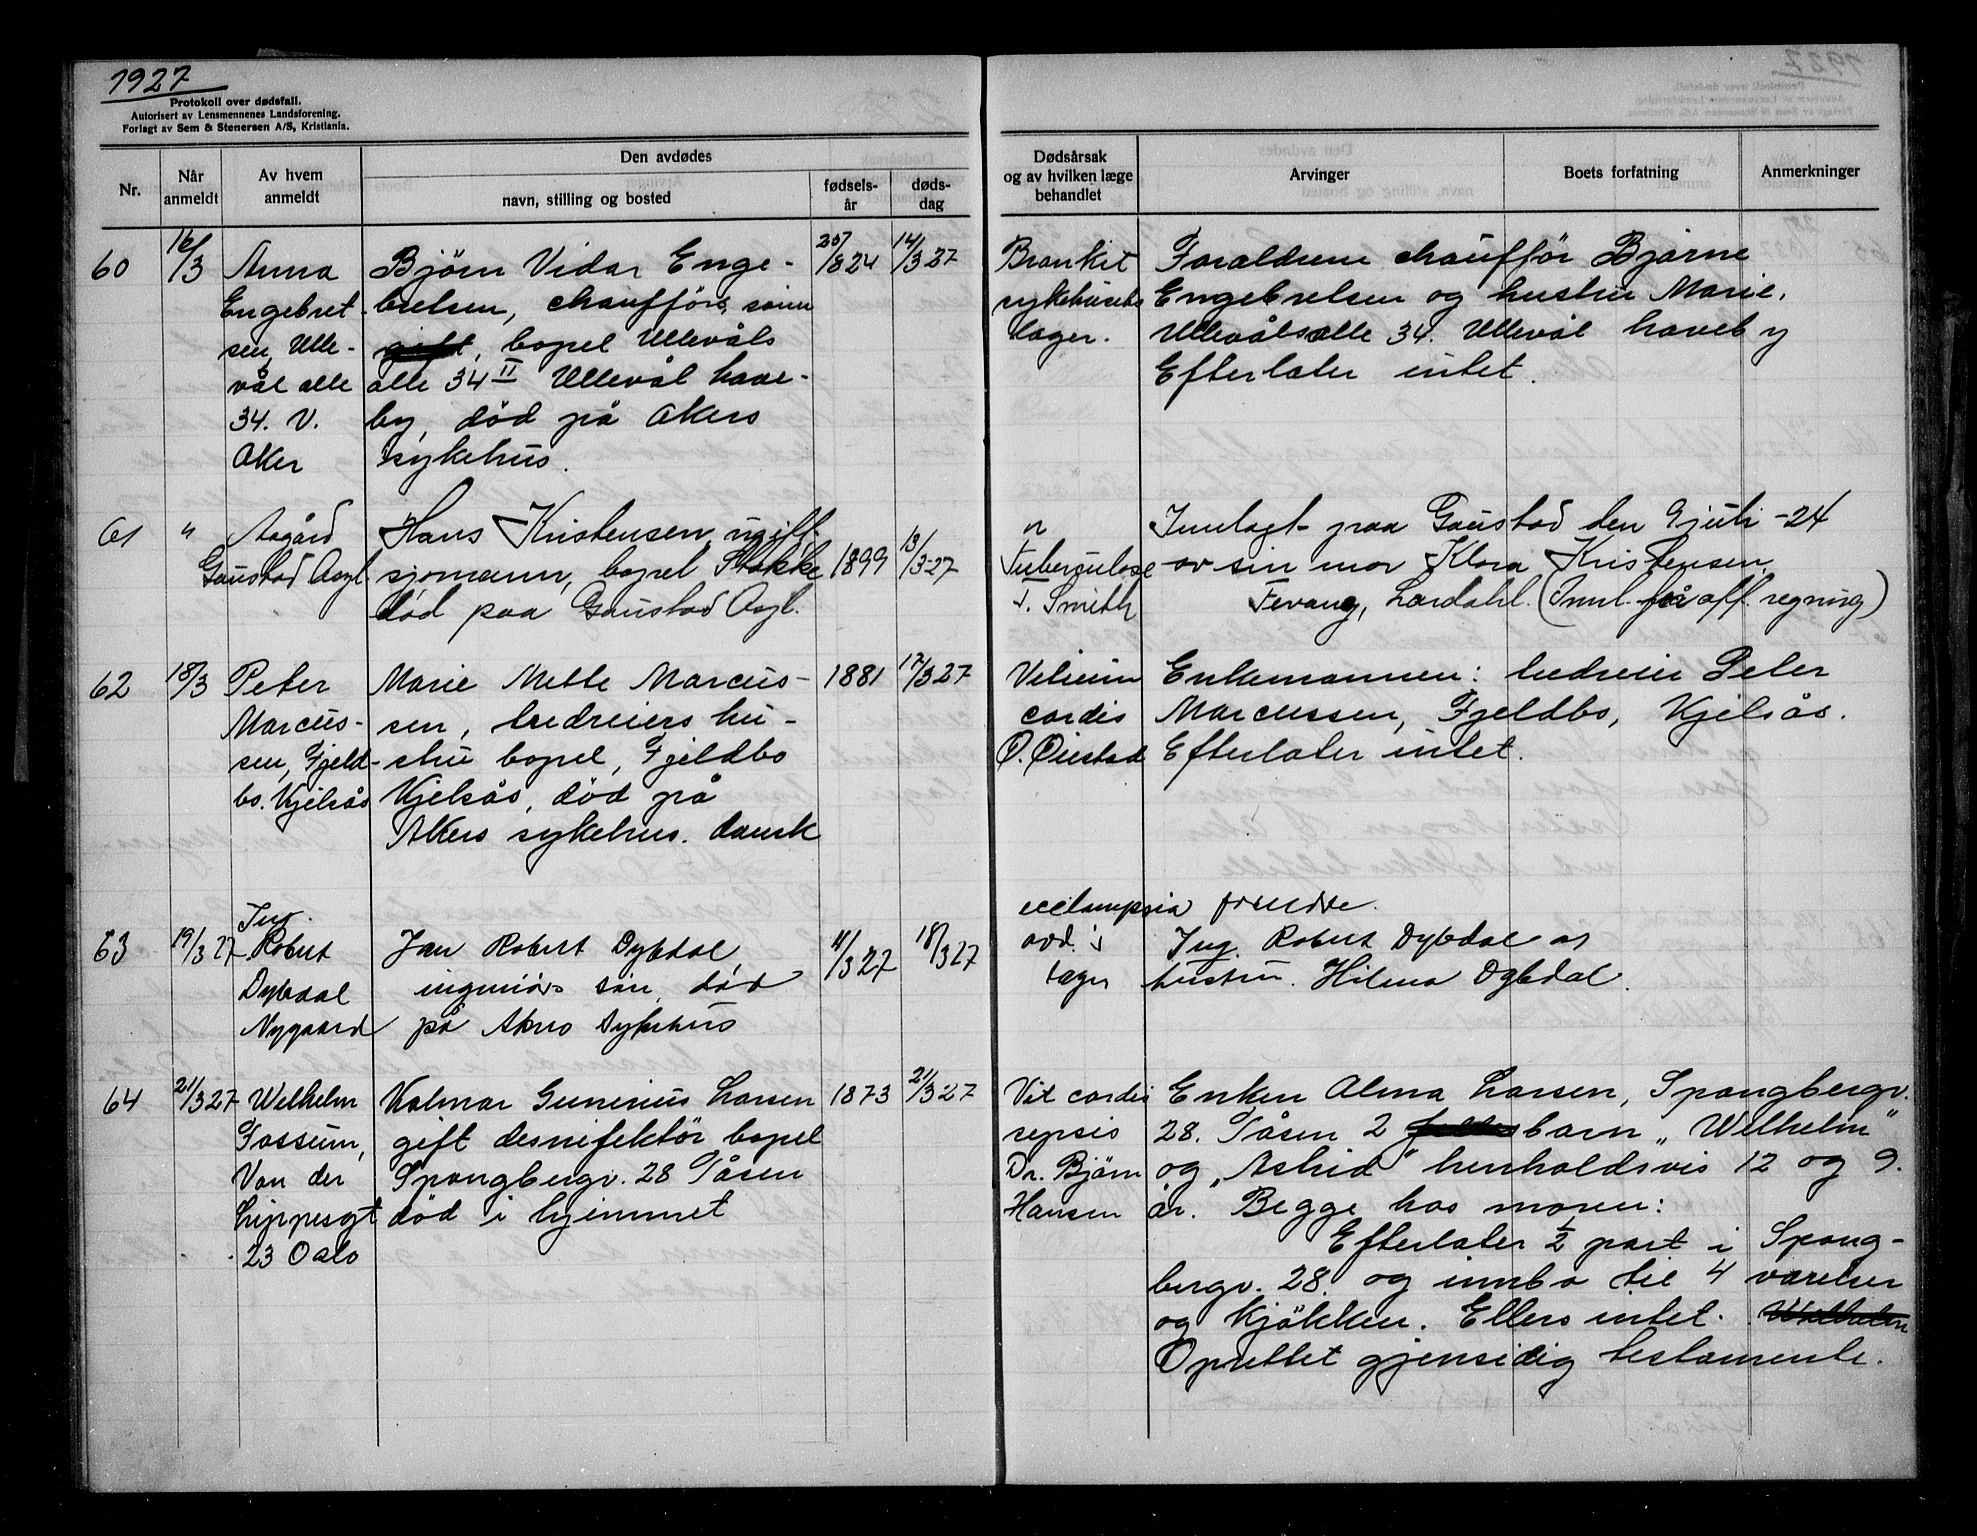 1927
Protokoll over dødsfall.
Autorisert av Lensmennenes Landsforening.
Forlagt av Sem & Stenersen A/S, Kristiania.
Nr.
Når anmeldt
Av hvem anmeldt
Den avdødes
navn, stilling og bosted
fødsels-år
døds-dag
Dødsårsak og av hvilken læge behandlet
Arvinger
Boets forfatning
Anmerkninger
60
16/3
Anna
Engebret
sen, Ulle-
vål alle
34. V.
Aker
Bjørn Vidar Enge-
bretsen, chaufførs, sønn
gift, bopel Ullevåls
alle 34 II Ullevål have-
by, død på Akers
sykehus.
20/8 24
14/3 27
Bronkit
sykehusets
læger.
Forældrene chauffør Bjarne
Engebretsen og hustru Marie.
Ullevålsalle 34. Ullevål haveby
Efterlater intet.
61
"
Aagård
Gaustad Asyl
Hans Kristensen, ugift.
sjømann, bopel Stokke
død paa Gaustad Asyl.
1899
13/3 27
Tuberculose
T. Smith
Innlagt paa Gaustad den 9 juli -24
av sin mor Klara Kristensen,
Fevang, Lardahl. (Innl. for off. regning)
62
18/3
Peter
Marcus-
sen, Fjeld-
bo. Kjelsås
Marie Mette Marcus-
sen, bedreiers hu-
stru bopel, Fjeldbo
Kjelsås, død på
Akers sykehus. dansk
1881
17/3 27
Vitium
cordis
O. Øiestad
Enkemannen: bedreier Peter
Marcussen, Fjeldbo, Kjelsås.
Efterlater intet.
63
19/3 27
Ing.
Robert
Dybdal
Nygaard
Jan Robert Dybdal,
ingeniørs søn, død
på Akers Sykehus
11/3 27
18/3 27
eclampsia
avd.s
læge
foreldre.
Ing. Robert Dybdal og
hustru. Hilma Dybdal.
64
21/3 27
Wilhelm
Fossum,
Van der
Lippesgt
23 Oslo
Kalmar Gunerius Larsen
gift desinfektør bopel
Spangbergv. 28 Tåsen
død i hjemmet
1873
21/3 27
Vit cordis
sepsis
Dr. Bjørn
Hansen
Enken Alma Larsen, Spangbergv.
28. Tåsen 2 barn „Wilhelm"
og „Astrid" henholdsvis 12 og 9.
år. Begge hos moren:
Efterlater 1/2 part i Spang-
bergv. 28. og innbo til 4 værelser
og kjøkken. Ellers intet.
Oprettet gjensidig testamente.